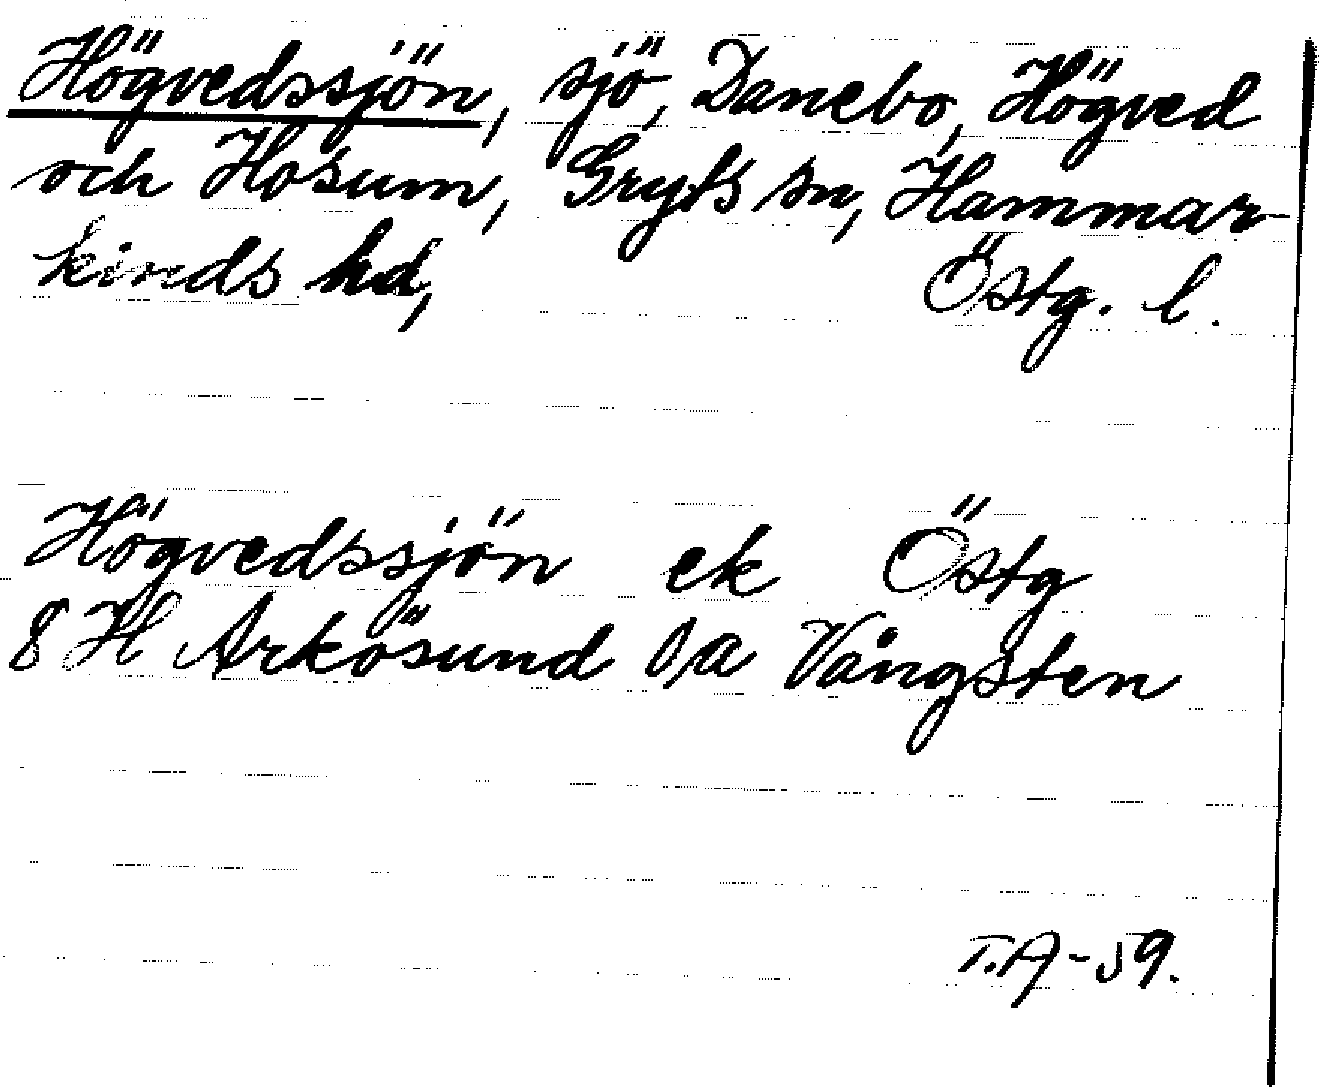 Högvedssjön, sjö, Danebo, Högved
och Hosum, Gryts sn, Hammar-
kinds hd, Östg. l.
Högvedssjön ek Östg
8 H Arkösund d,a Vångsten
T.A-59.